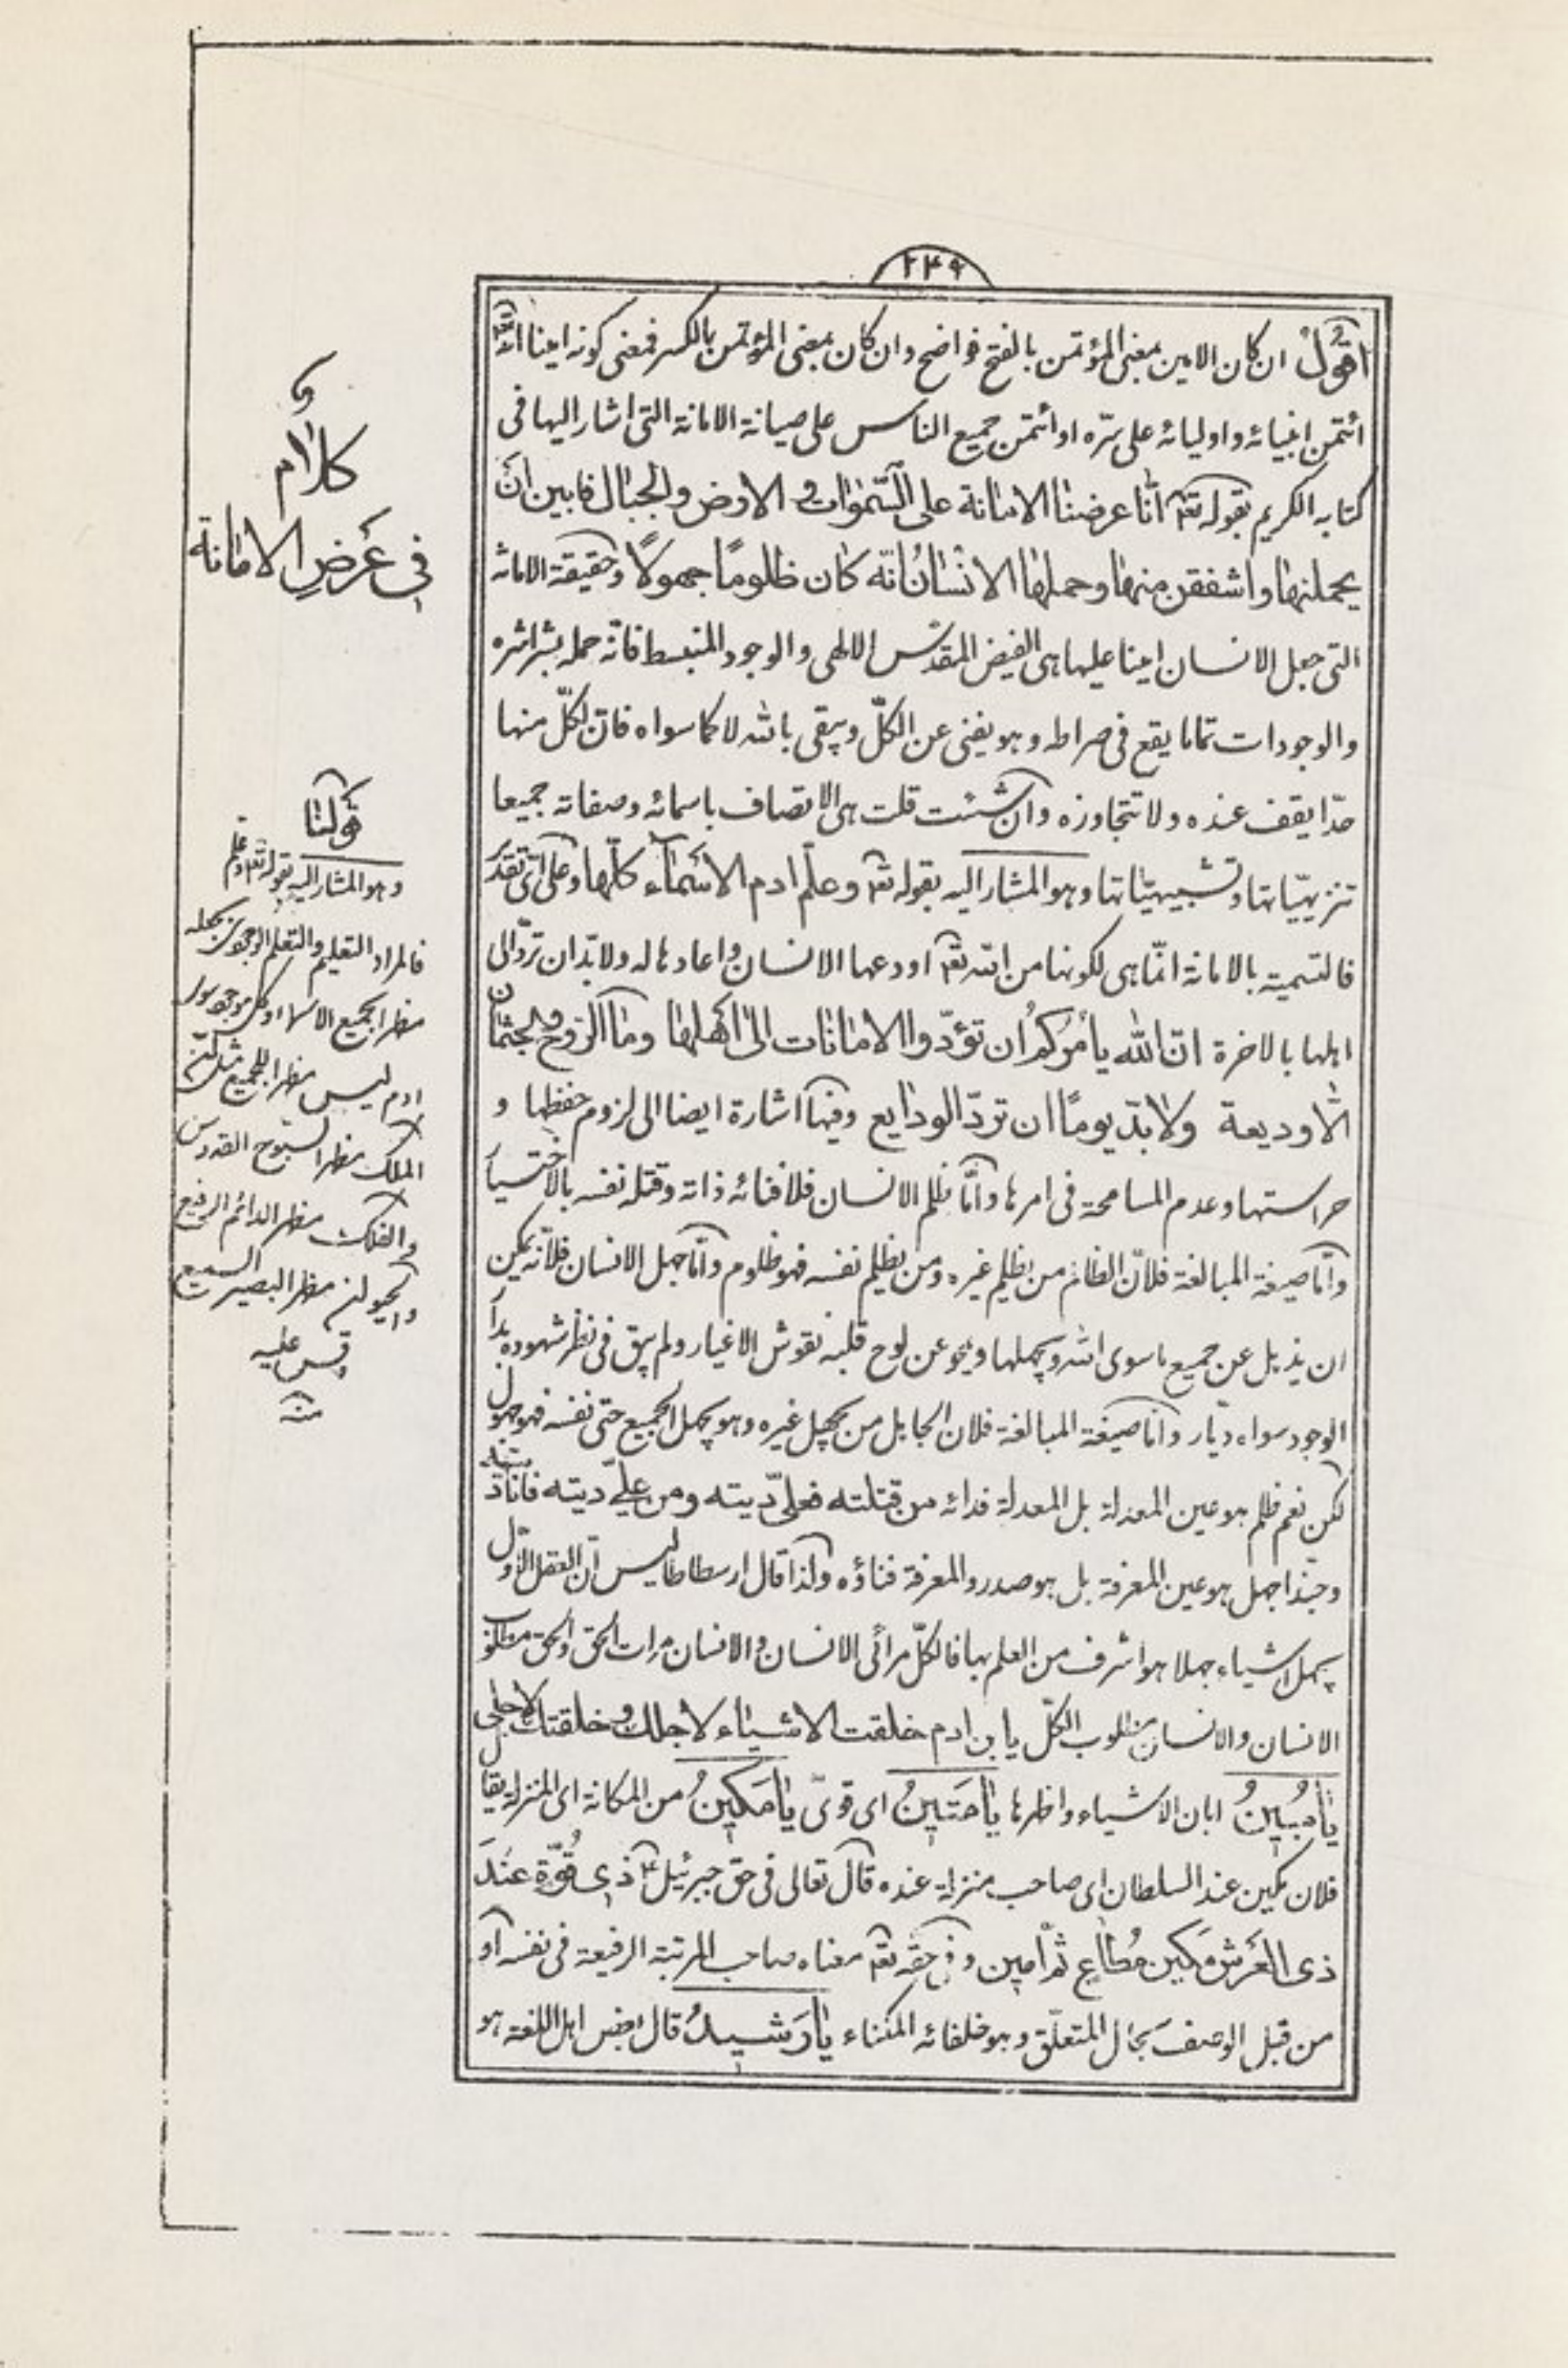 ٢٤٩
اقول ان كان الامين بمعنى المؤتمن بالفتح فواضح وان كان بمعنى المؤتمن بالكسر فمعنى كونه امينا انه
ائتمن انبيائه و اوليائه على سرّه او ائتمن جميع الناس على صيانة الامانة التى اشار اليها فى
كتابه الكريم بقوله تع انّا عرضنا الامانة على السّموات و الارض والجبال فابين ان
يحملنها واشفقن منها وحملها الانسان انّه كان ظلومًا جهولًا وحقيقة الامانة
التى جعل الانسان امينا عليها هى الفيض المقدّس الالهى و الوجود المنبسط فانّه حمله بشراشره
والوجودات تماما يقع فى صراطه وهو يفنى عن الكلّ ويبقى بالله لا كما سواه فانّ لكلّ منها
حدّا يقف عنده ولا تتجاوزه وان شئت قلت هى الاتصاف باسمائه وصفاته جميعا
تنزيهيّاتها وتشبيهيّاتها وهو المشار اليه بقوله تع وعلّم ادم الاسمآء كلّها وعلى اىّ تقدير
فالتسمية بالامانة انّما هى لكونها من الله تع اودعها الانسان واعادها له ولا بدّ ان تردّ الى
اهلها بالاخرة انّ الله يأمركم ان تؤدّوا الامانات الى اهلها وما الروح والجثمان
الّا وديعة ولا بدّ يومًا ان تردّ الودايع وفيها اشارة ايضا الى لزوم حفظها و
حراستها وعدم المسامحة فى امرها وامّا ظلم الانسان فلافنائه ذاته وقتله نفسه بالاختيار
وامّا صيغة المبالغة فلانّ الظالم من يظلم غيره ومن يظلم نفسه فهو ظلوم وامّا جهل الانسان فلانّه يمكن
ان يذهل عن جميع ما سوى الله ويجهلها ويمحو عن لوح قلبه نقوش الاغيار ولم يبق فى نظر شهوده بدار
الوجود سواه ديّار وامّا صيغة المبالغة فلان الجاهل من يجهل غيره وهو يجهل الجميع حتى نفسه فهو جهول
لكن نعم ظلم هو عين المعدلة بل المعدلة فدائه من قتلته فعلىّ ديته ومن علىّ ديته فانا ديته
وحبّذا جهل هو عين المعرفة بل هو صدر والمعرفة فناؤه ولذا قال ارسطاطاليس انّ العقل الاول
يجهل اشياء جهلا هو اشرف من العلم بها فالكلّ مرائى الانسان والانسان مرات الحق والحق مطلوب
الانسان والانسان مطلوب الكلّ يا بن ادم خلقت الاشياء لاجلك و خلقتك لاجلى
يا مُبينُ ابان الاشياء واظهرها يا مَتينُ اى قوىّ يا مَكينُ من المكانة اى المنزلة يقال
فلان مكين عند السلطان اى صاحب منزلة عنده قال تعالى فى حق جبرئيل ع ذى قُوّةٍ عندَ
ذى العَرشِ مَكين مُطاعٍ ثَمّ امين و فى حقه تع معناه صاحب المرتبة الرفيعة فى نفسه او
من قبل الوصف بحال المتعلّق وهو خلفائه المكناء يا رَشيدُ قال بعض اهل اللغة هو
كلام
فى عَرضِ الامانة
قولنا
وهو المشار اليه بقوله تع وعلّم ادم
فالمراد التعليم والتعلم الوجودى بجعله
مظهرا لجميع الاسماء وكل موجود سوى
ادم ليس مظهرا للجميع مثل
الملك مظهر السبّوح القدوس
والفلك مظهر الدائم الرفيع
والحيوان مظهر البصير السميع
وقس عليه
منه